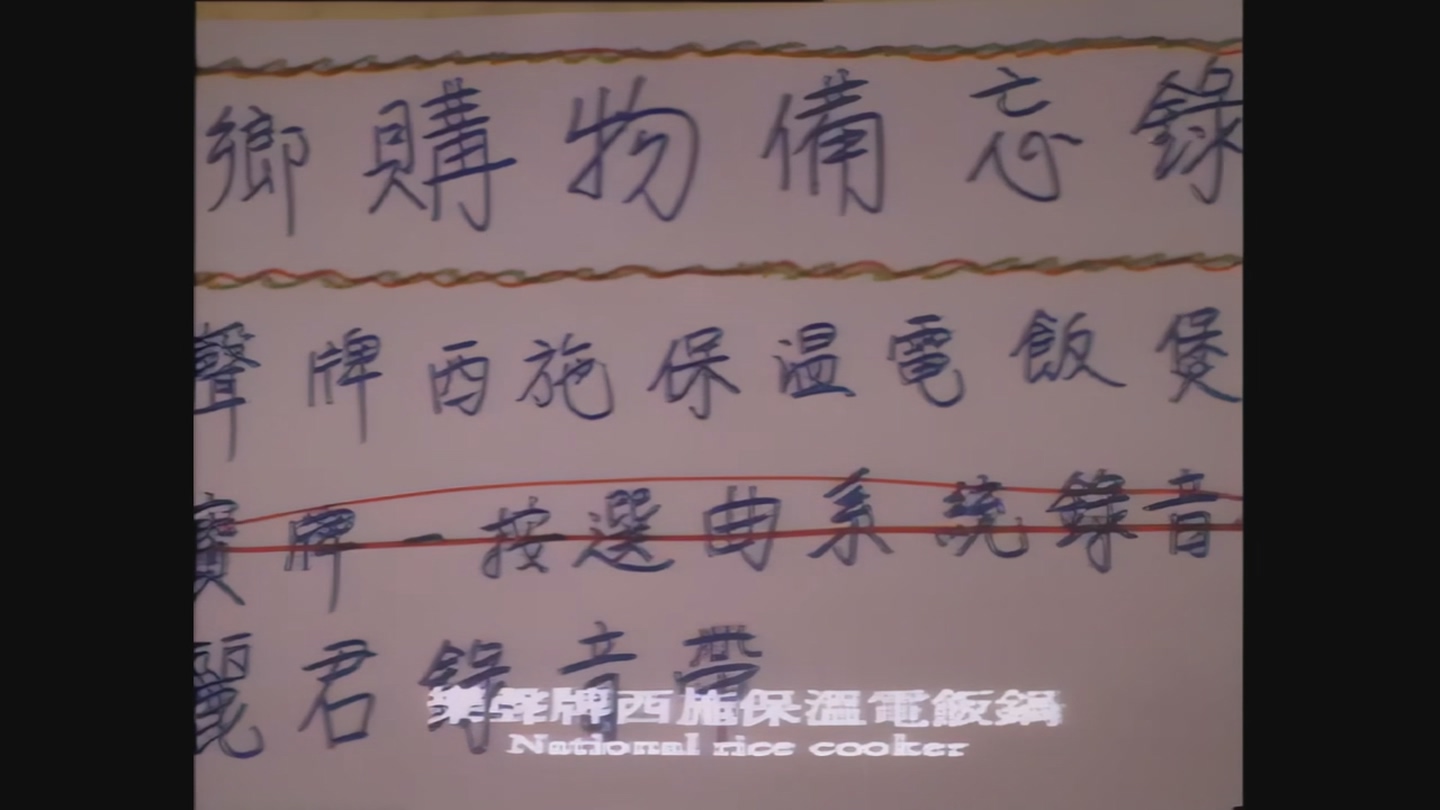 鄉購物備忘錄
聲牌西施保溫電飯煲
寶牌一按選曲系統錄音
麗君錄音帶
樂聲牌西施保溫電飯鍋
National rice cooker